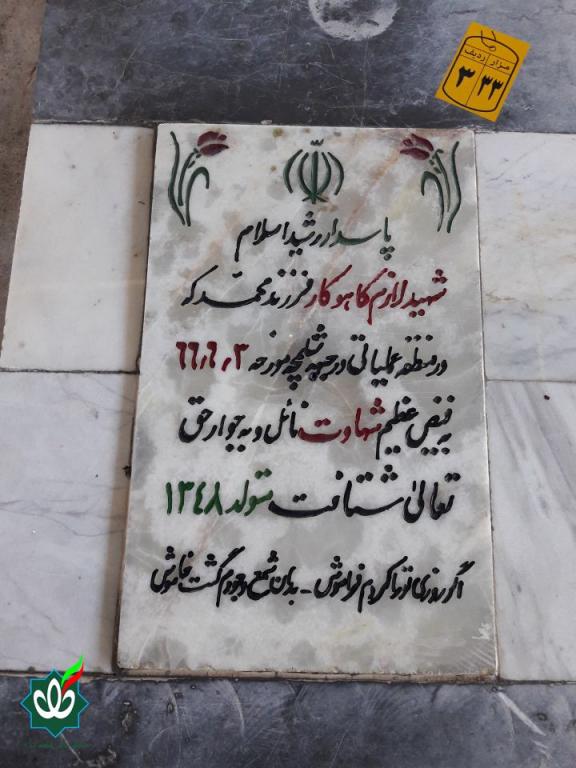 مزار ردیف
۳۳ ۳
پاسدار رشید اسلام
شهید لازم کاهوکار فرزند محمد که
در منطقه عملیاتی در جبهه شلمچه مورخه ۶۶٫۶٫۳
به فیض عظیم شهادت نائل و به جوار حق
تعالی شتافت متولد ۱۳۴۸
اگر روزی تو را کردم فراموش - بدان شمع وجودم گشت خاموش